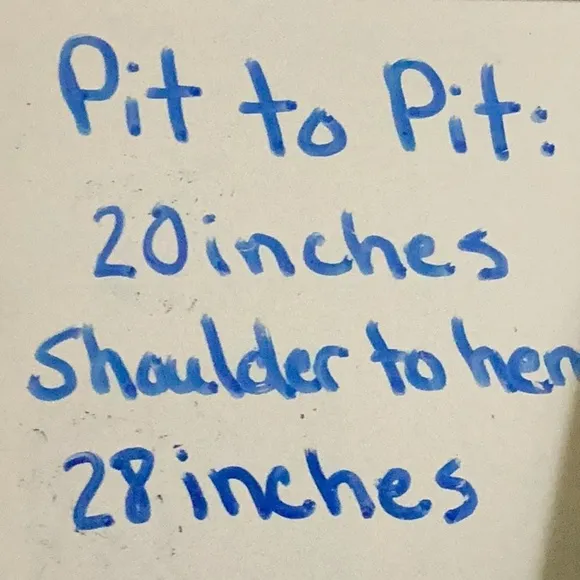 Pit to Pit:
20 inches
Shoulder to hem
28 inches